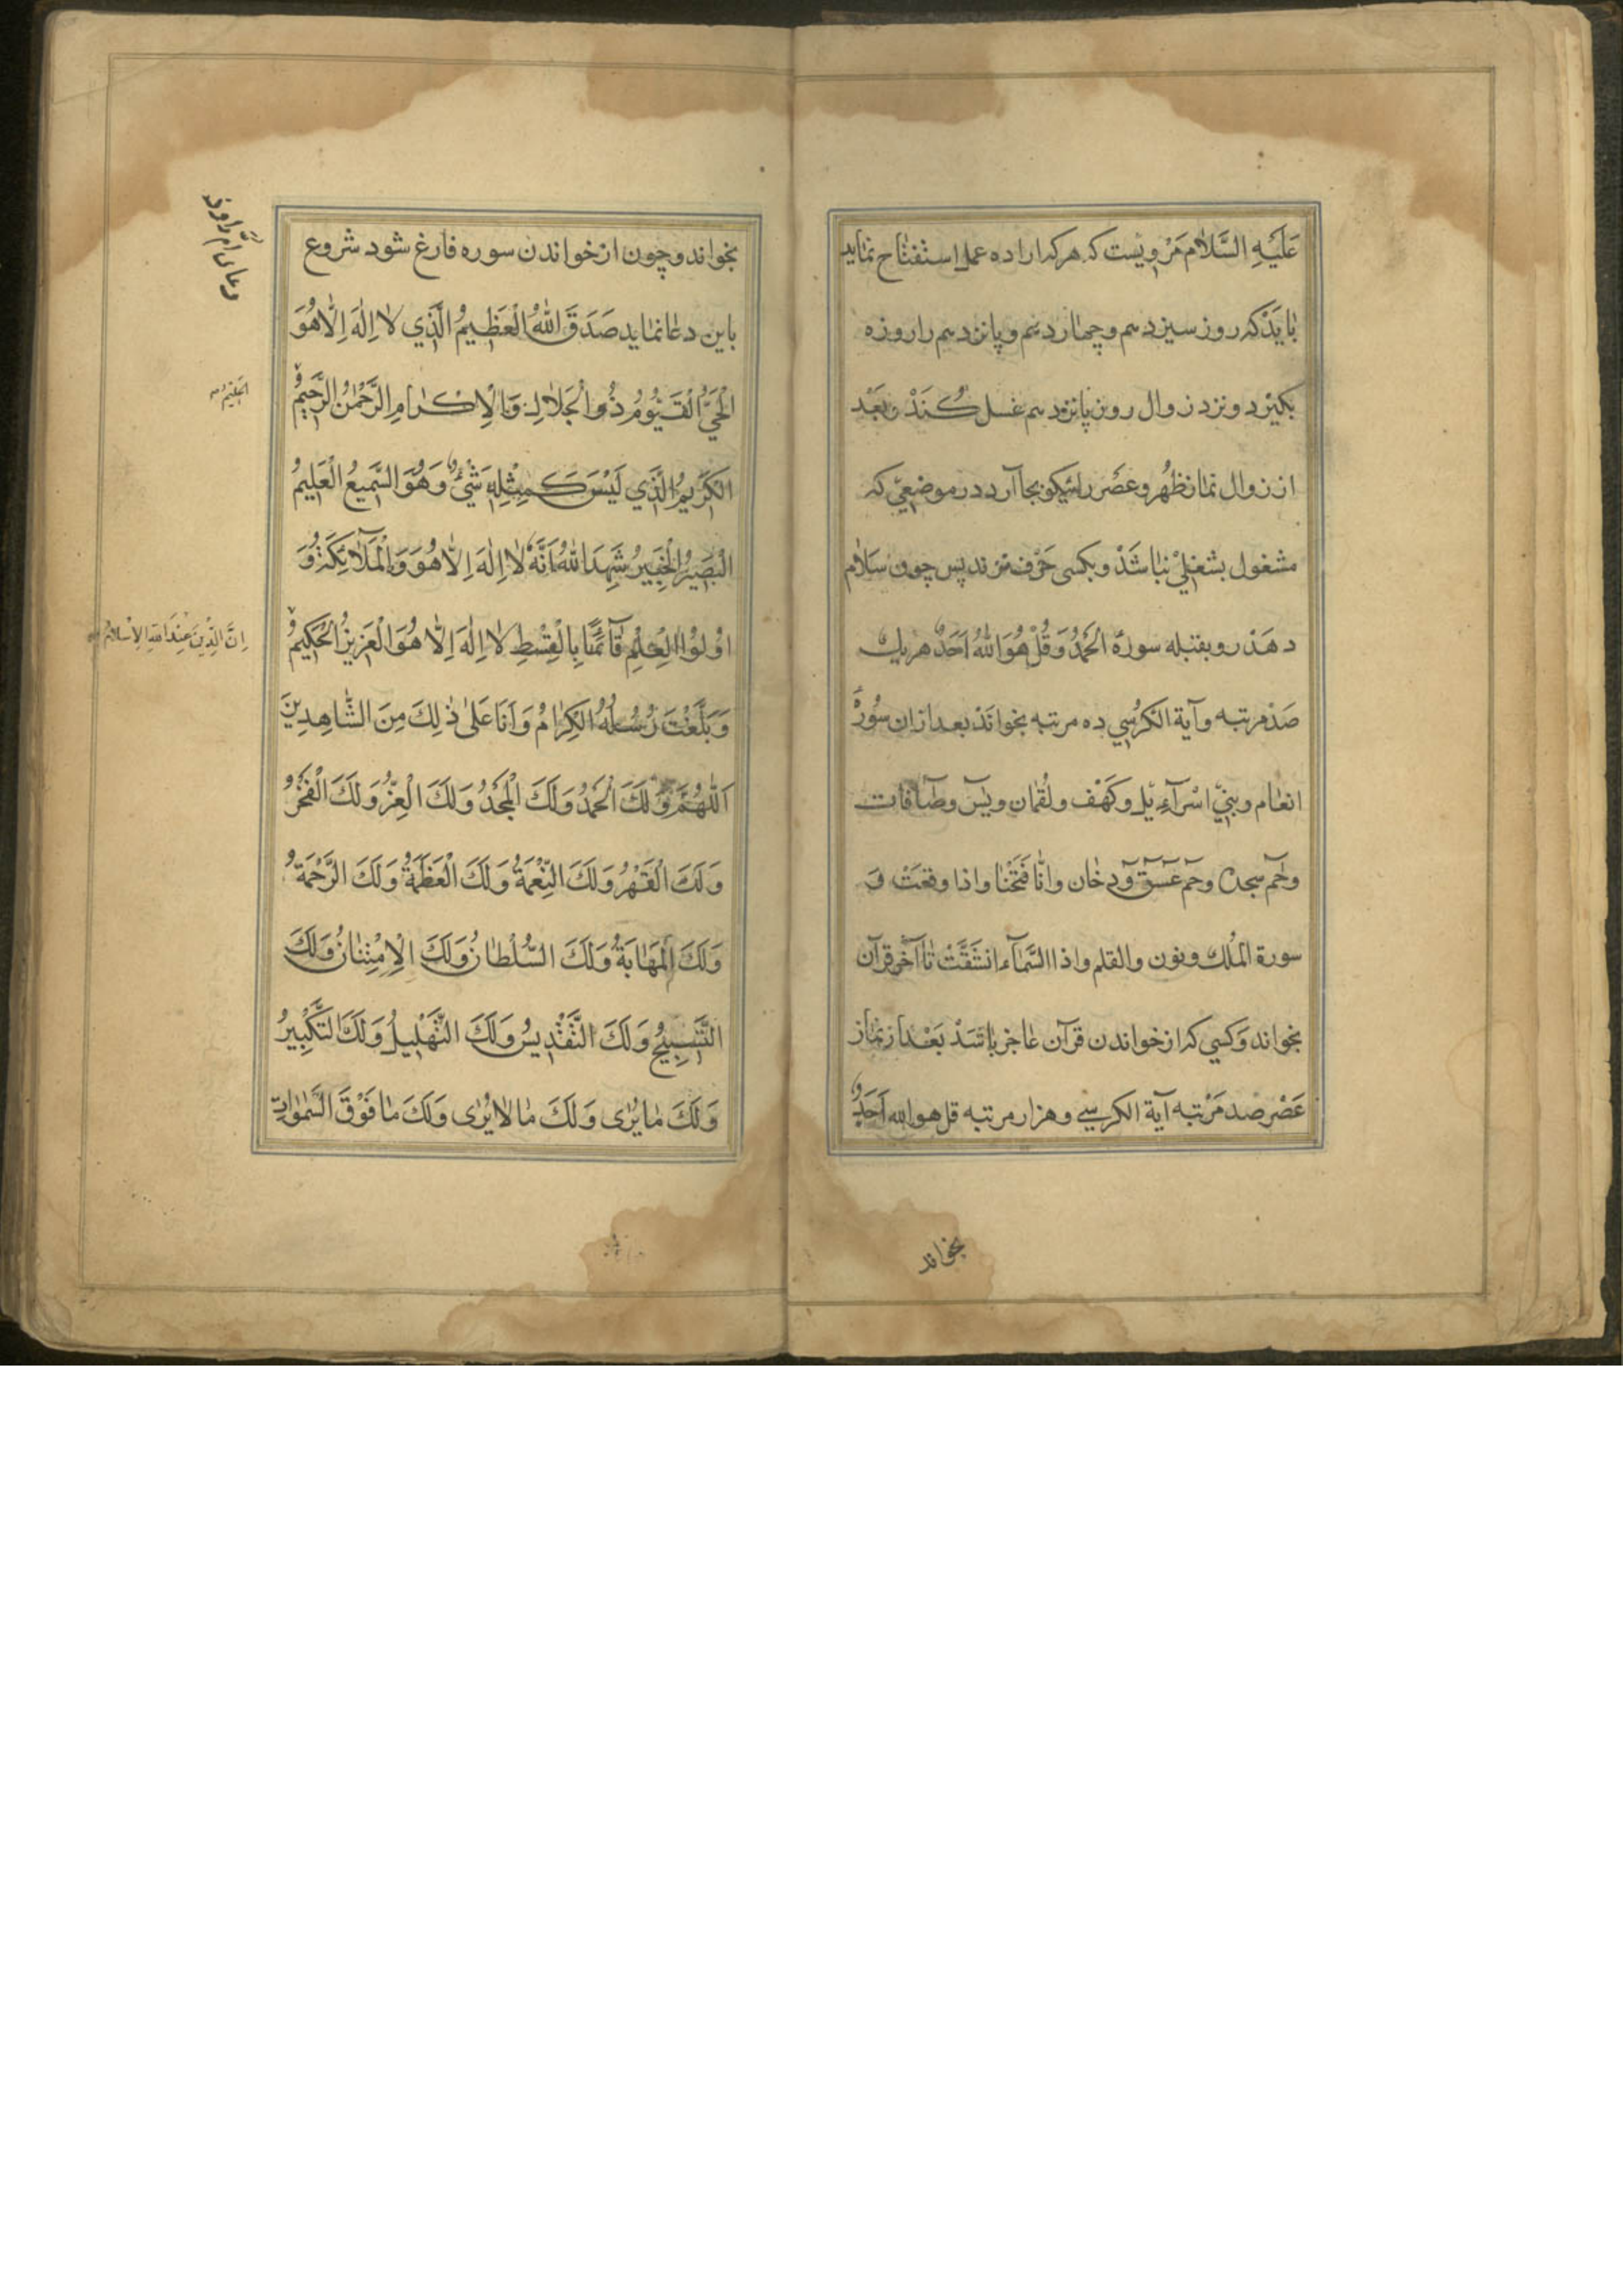 عَلَيْهِ السَّلَام مَرْويست كه هركه اراده عمل استفتاح نمايد
بايَدْ كه روز سيزدهم و چهاردهم و پانزدهم را روزه
بكيرد و نزد زوال روز پانزدهم غسل كُنَدْ و بَعْد
از زوال نماز ظُهر و عَصْر را نيكو بجا آرد در موضعي كه
مشغول بشغلي نباشَدْ و بكسى حَرْف نزند پس چون سَلام
دهَدْ رو بقبله سورهٔ الْحَمْدُ وَ قُلْ هُوَ اللهُ اَحَدٌ هريك
صَدْ مرتبه و آية الكرْسي ده مرتبه بخوانَدْ بعد ازان سُورهٔ
انعام و بَنِي اسْرآءِيل و كَهْف و لُقمان و يٓس و صٓافات
و حٓم سجده و حٓم عٓسٓقٓ و دخان و انّا فَتَحْنا و اذا وقعَتْ و
سورة الملك و نون والقلم و اذا السَّمآء انشَقَّتْ تا آخر قرآن
بخواند وَ كسي كه از خواندن قرآن عاجز باشَدْ بَعْد از نماز
عَصْر صد مَرْتبه آية الكرسي و هزار مرتبه قل هو الله اَحَدٌ
بخواند
بخواند و چون از خواندن سوره فارغ شود شروع
باين دعا نمايد صَدَقَ اللهُ الْعَظِيمُ الَّذِي لا اِلٰهَ اِلّا هُوَ
الْحَيُّ الْقَيُّومُ ذُو الْجَلالِ وَ الْاِكْرامِ الرَّحْمٰنُ الرَّحِيمُ
الْحَلِيمُ
الْكَرِيمُ الَّذِي لَيْسَ كَمِثْلِهِ شَيْءٌ وَ هُوَ السَّمِيعُ الْعَلِيمُ
الْبَصِيرُ الْخَبِيرُ شَهِدَ اللهُ اَنَّهُ لا اِلٰهَ اِلّا هُوَ وَ الْمَلآئِكَةُ وَ
اُولُوا الْعِلْمِ قآئِمًا بِالْقِسْطِ لا اِلٰهَ اِلّا هُوَ الْعَزِيزُ الْحَكِيمُ
اِنَّ الدِّينَ عِنْدَ اللهِ الْاِسْلامُ
وَ بَلَّغْتَ رُسُلُهُ الْكِرامُ وَ اَنَا عَلىٰ ذٰلِكَ مِنَ الشّاهِدِينَ
اَللّٰهُمَّ وَ لَكَ الْحَمْدُ وَ لَكَ الْمَجْدُ وَ لَكَ الْعِزُّ وَ لَكَ الْفَخْرُ
وَ لَكَ الْقَهْرُ وَ لَكَ النِّعْمَةُ وَ لَكَ الْعَظَمَةُ وَ لَكَ الرَّحْمَةُ
وَ لَكَ الْمَهابَةُ وَ لَكَ السُّلْطانُ وَ لَكَ الْاِمْتِنانُ وَ لَكَ
التَّسْبِيحُ وَ لَكَ التَّقْدِيسُ وَ لَكَ التَّهْلِيلُ وَ لَكَ التَّكْبِيرُ
وَ لَكَ ما يُرىٰ وَ لَكَ ما لا يُرىٰ وَ لَكَ ما فَوْقَ السَّمٰواتِ